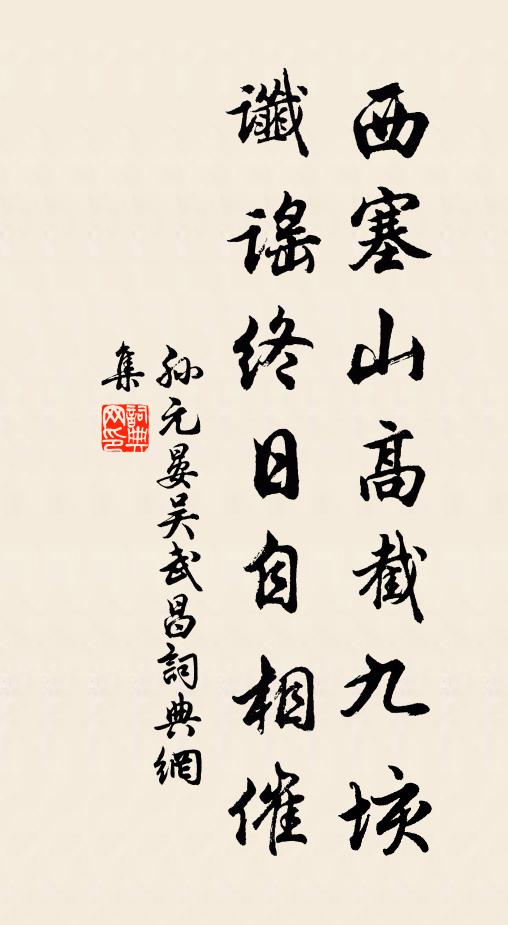 西塞山高截九垓
讖謠終日自相催
孫元晏吳武昌詞典網
集
詞典
网印